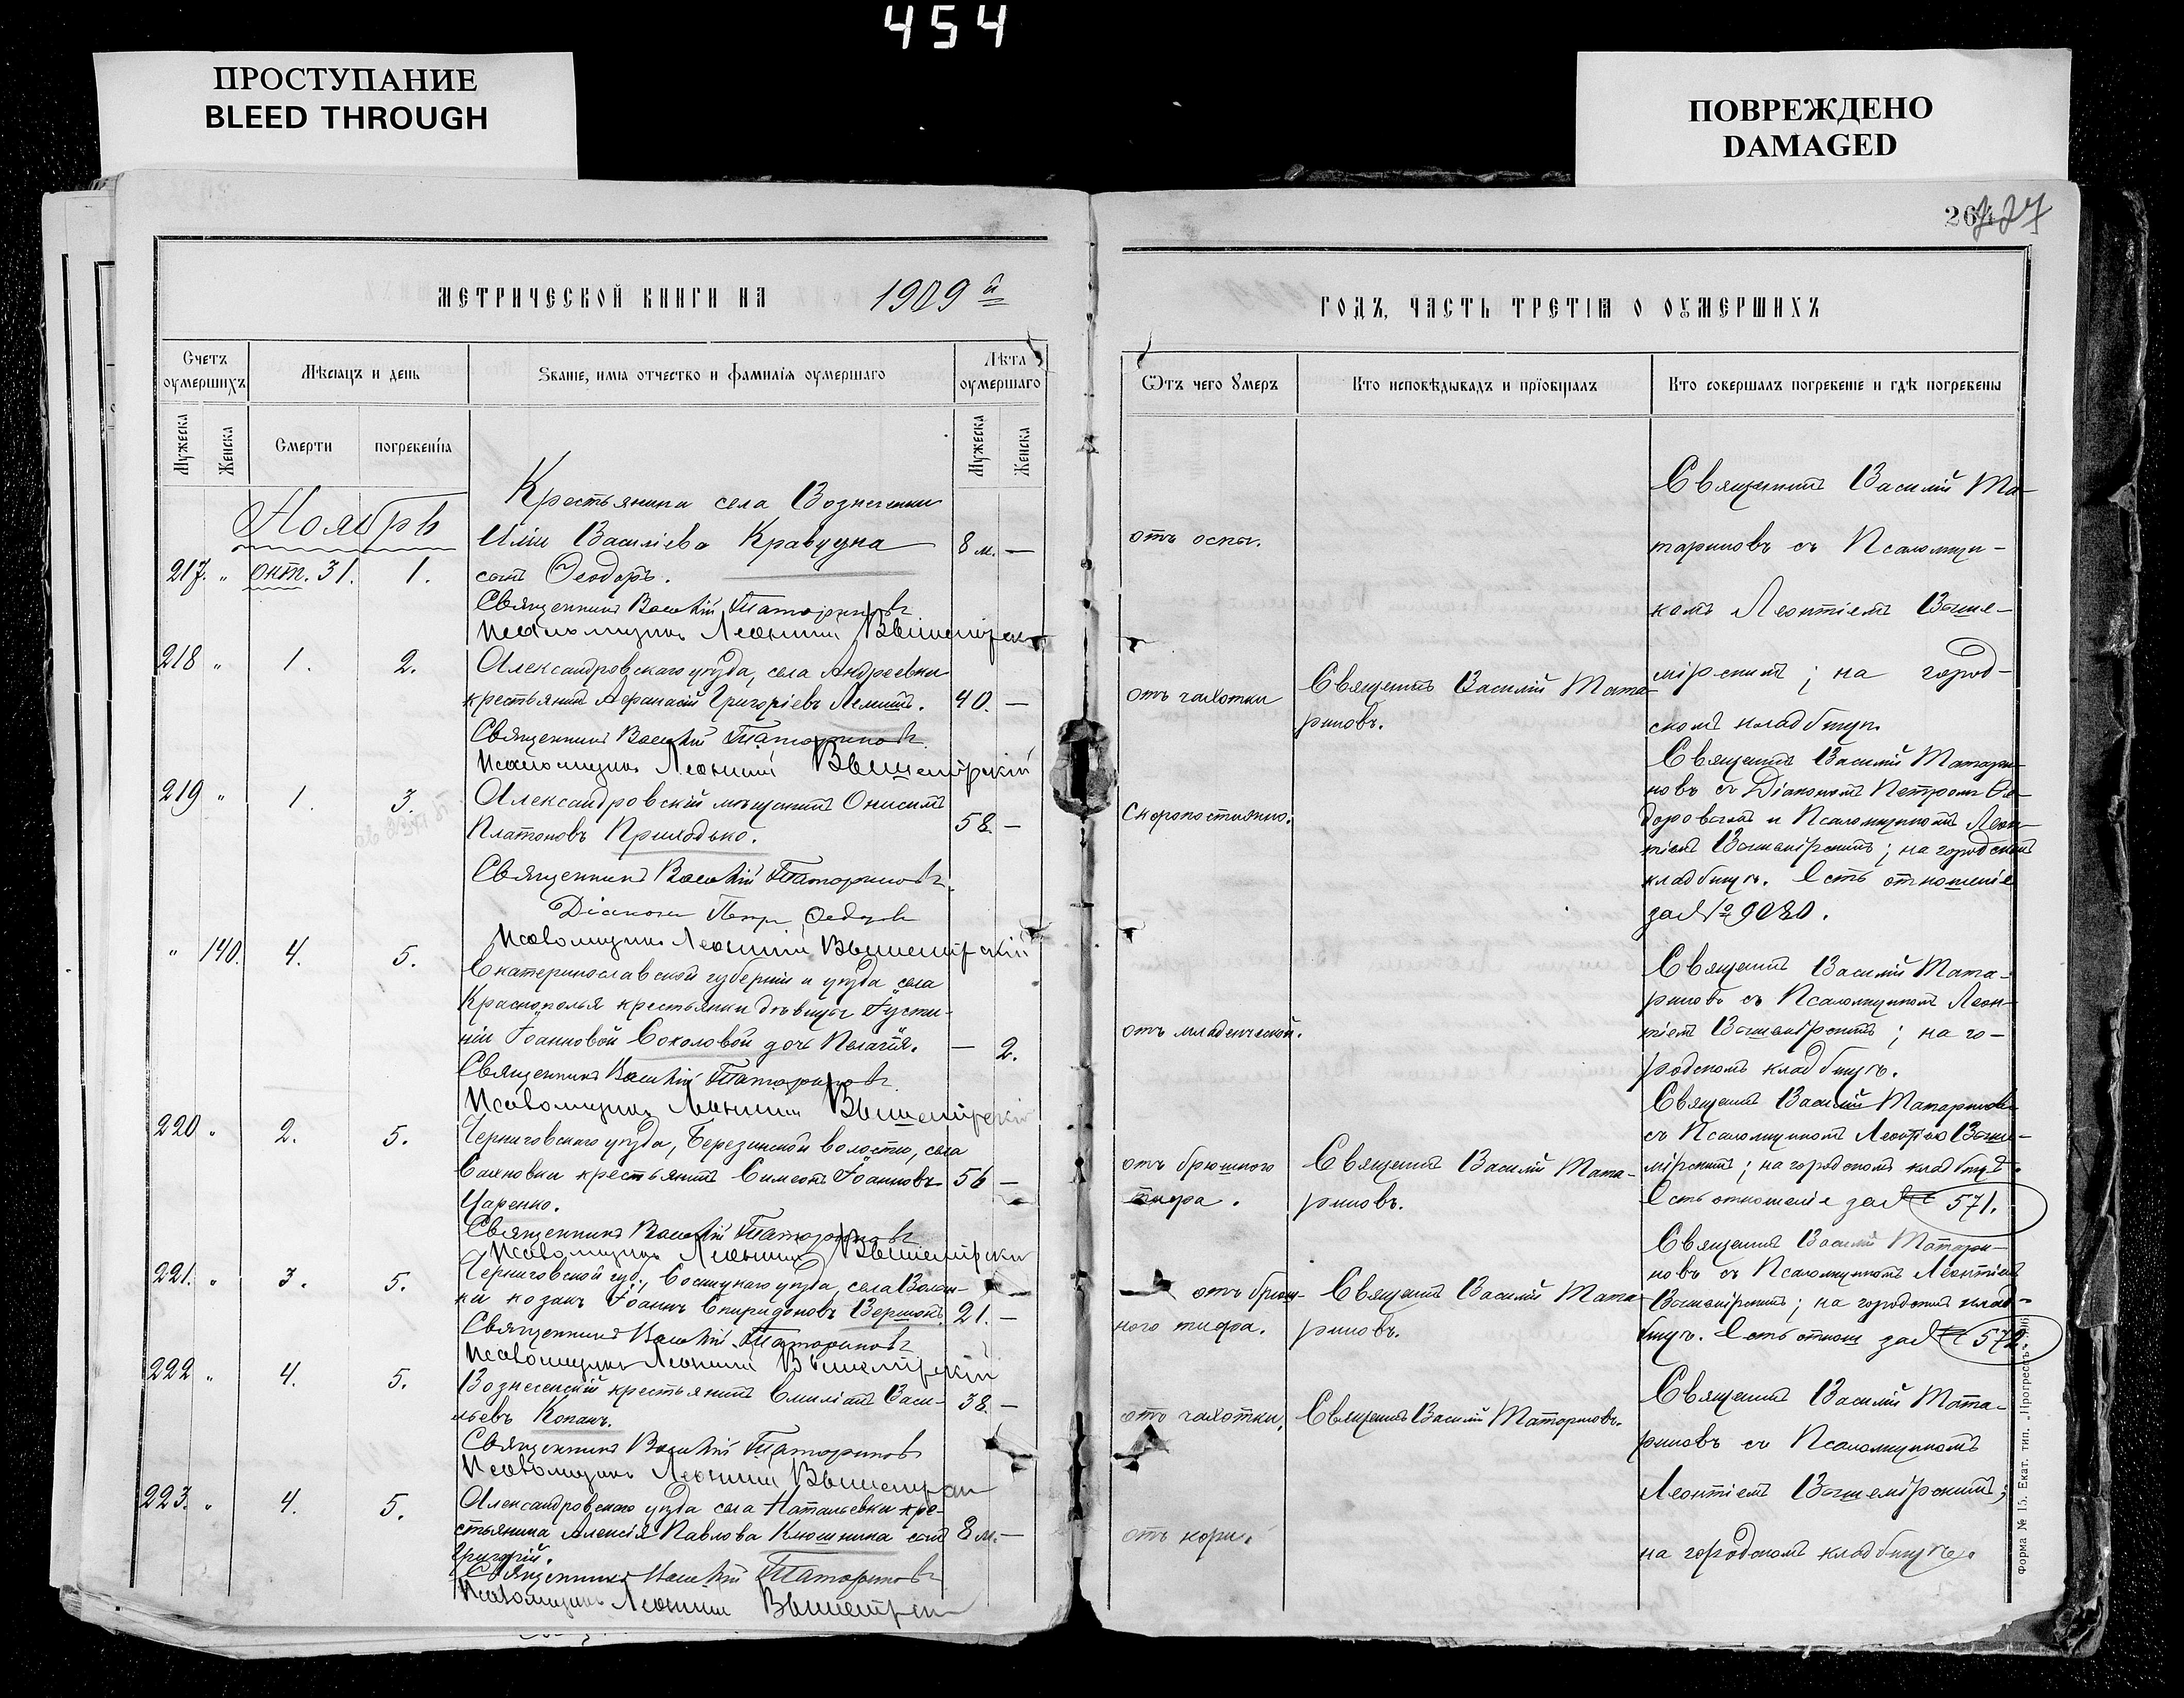 454
ПРОСТУПАНИЕ
BLEED THROUGH
ПОВРЕЖДЕНО
DAMAGED
МЕТРИЧЕСКОЙ КНИГИ НА 1909 й
Счетъ оумершихъ
Мѣсяцъ и день
Званіе, имя отчество и фамилія оумершаго
Лѣта оумершаго
Мужеска
Женска
Смерти
погребенія
Мужеска
Женска
Ноябрь
Крестьянина села Вознесенки
Иліи Василіева Кравцуна 8 м. —
217. " окт. 31. 1. сынъ Ѳеодоръ.
Священникъ Василій Татариновъ
Псаломщикъ Леонтій
218 " 1. 2. Александровскаго уѣзда, села Андреевки
крестьянинъ Аѳанасій Григоріевъ 40. —
Священникъ Василій Татариновъ
Псаломщикъ Леонтій Вышемірскій
219 " 1. 3. Александровскій мѣщанинъ Онисимъ
Платоновъ Приходько. 58. —
Священникъ Василій Татариновъ.
Діаконъ Петръ
Псаломщикъ Леонтій Вышемірскій
" 140. 4. 5. Екатеринославской губерніи и уѣзда села
Краснополья крестьянки дѣвицы Іусти-
ніи Іоанновой Соколовой дочь Пелагія. — 2.
Священникъ Василій Татариновъ
Псаломщикъ Леонтій Вышемірскій
220 " 2. 5. Черниговскаго уѣзда, Березинской волости, села
крестьянинъ Симеонъ Іоанновъ 56 —
Царенко.
Священникъ Василій Татариновъ
Псаломщикъ Леонтій
221. " 3. 5. Черниговской губ., Сосницкаго уѣзда, села
козакъ Іоаннъ Спиридоновъ 21. —
Священникъ Василій Татариновъ
Псаломщикъ Леонтій Вышемірскій
222 " 4. 5. Вознесенскій крестьянинъ Емиліанъ Васи- 38. —
льевъ Копанъ.
Священникъ Василій Татариновъ
Псаломщикъ Леонтій
223. " 4. 5. Александровскаго уѣзда села Натальевки кре-
стьянина Алексія Павлова Клюшника сынъ 8 м. —
Григорій.
Священникъ Василій Татариновъ
Псаломщикъ Леонтій
ГОДЪ, ЧАСТЬ ТРЕТІЯ О ОУМЕРШИХЪ
Ѿтъ чего Умеръ
Кто исповѣдывалъ и пріобщалъ
Кто совершалъ погребеніе и гдѣ погребены
отъ оспы.
Священникъ Василій Та-
тариновъ съ Псаломщи-
комъ Леонтіемъ Выше-
мірскимъ; на город-
скомъ кладбищѣ.
отъ чахотки
Священникъ Василій Тата-
риновъ.
Скоропостижно.
Священникъ Василій Татари-
новъ съ Діакономъ Петромъ Ѳе-
доровымъ и Псаломщикомъ Леон-
тіемъ Вышемірскимъ; на городскомъ
кладбищѣ. Есть отношеніе
за № 9080.
отъ младенческой.
Священникъ Василій Тата-
риновъ съ Псаломщикомъ Леон-
тіемъ Вышемірскимъ; на го-
родскомъ кладбищѣ.
отъ брюшного
тифа.
Священникъ Василій Тата-
риновъ.
Священникъ Василій Татариновъ
съ Псаломщикомъ Леонтіемъ Выше-
мірскимъ; на городскомъ кладбищѣ.
Есть отношеніе за № 571.
отъ брюш-
ного тифа.
Священникъ Василій Тата-
риновъ.
Священникъ Василій Татари-
новъ съ Псаломщикомъ Леонтіемъ
Вышемірскимъ; на городскомъ клад-
бищѣ. Есть отнош за № 572.
отъ чахотки.
Священникъ Василій Татариновъ.
отъ кори.
Священникъ Василій Тата-
риновъ съ Псаломщикомъ
Леонтіемъ Вышемірскимъ;
на городскомъ кладбищѣ.
Форма № 15. Екат. тип. „Прогрессъ“